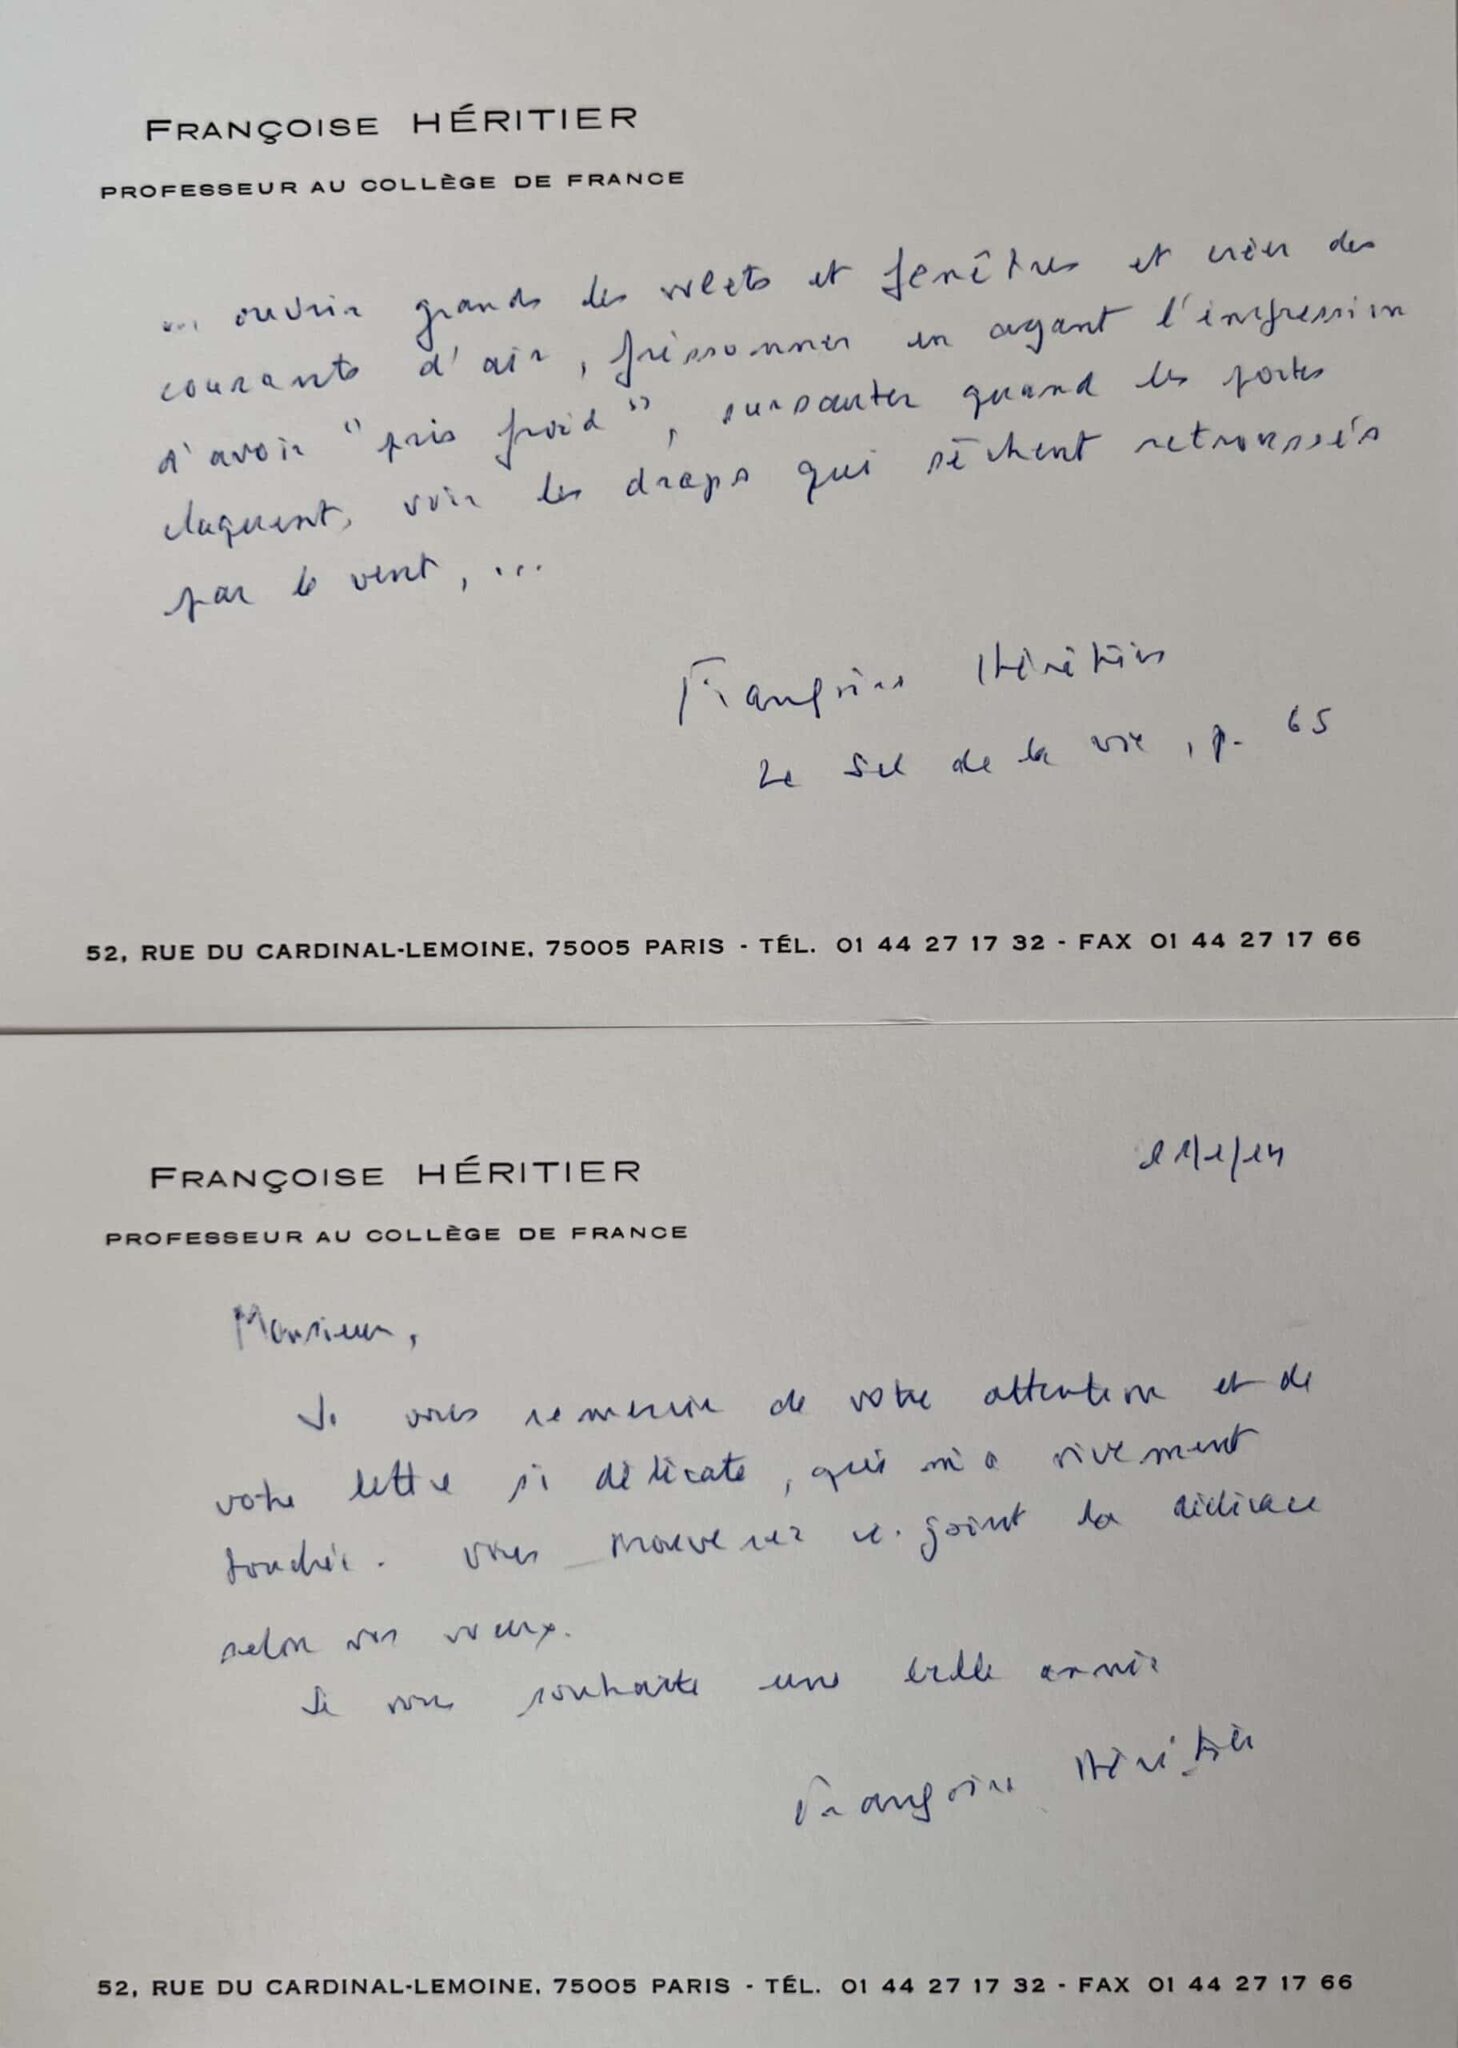 FRANÇOISE HÉRITIER
PROFESSEUR AU COLLÈGE DE FRANCE
... ouvrir grands les volets et fenêtres et créer des
courants d'air, frissonner en ayant l'impression
d'avoir "pris froid", sursauter quand les portes
claquent, voir les draps qui sèchent retroussés
par le vent, ...
Françoise Héritier
Le Sel de la vie, p. 65
52, RUE DU CARDINAL-LEMOINE, 75005 PARIS - TÉL. 01 44 27 17 32 - FAX 01 44 27 17 66
FRANÇOISE HÉRITIER
PROFESSEUR AU COLLÈGE DE FRANCE
Monsieur,
Je vous remercie de votre attention et de
votre lettre si délicate, qui m'a vivement
touchée. Vous trouverez ci-joint la dédicace
selon vos vœux.
Je vous souhaite une belle année
Françoise Héritier
52, RUE DU CARDINAL-LEMOINE, 75005 PARIS - TÉL. 01 44 27 17 32 - FAX 01 44 27 17 66